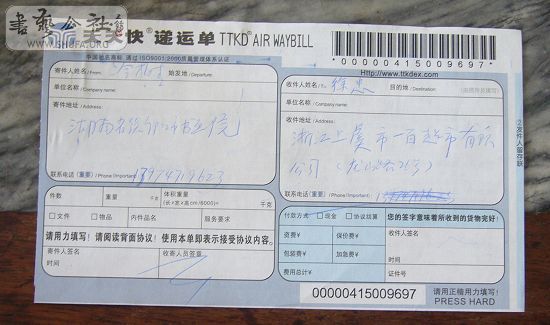 書藝公社
WWW.SHUFA.ORG
天天快递运单 TTKD AIR WAYBILL
中国驰名商标 通过ISO9001:2000质量管理体系认证
00000415009697
Http://www.ttkdex.com
寄件人姓名/From: 始发地/Departure:
单位名称/Company name:
寄件地址/Address:
湖南省
联系电话(重要)/Phone(Important)
收件人姓名/ 徐 目的地/Destination:
单位名称/Company name:
收件地址/Address:
浙江上虞市一百超市有限
公司(龙山路
联系电话(重要)/Phone(Important)
件数 重量 千克 体积重量 (长×宽×高cm/6000)= 千克
□文件 □物品 内件品名 服务要求
请用力填写!请阅读背面协议!使用本单即表示接受协议内容。
寄件人签名 收寄人员签章
时间
付款方式 □现金 □协议结算
资费¥ 保价费¥
包装费¥ 加急费¥
费用总计¥
您的签字意味着所收到的货物完好!
收件人签名
时间
证件号
00000415009697
请用正楷用力填写!
PRESS HARD
②发件人留存联